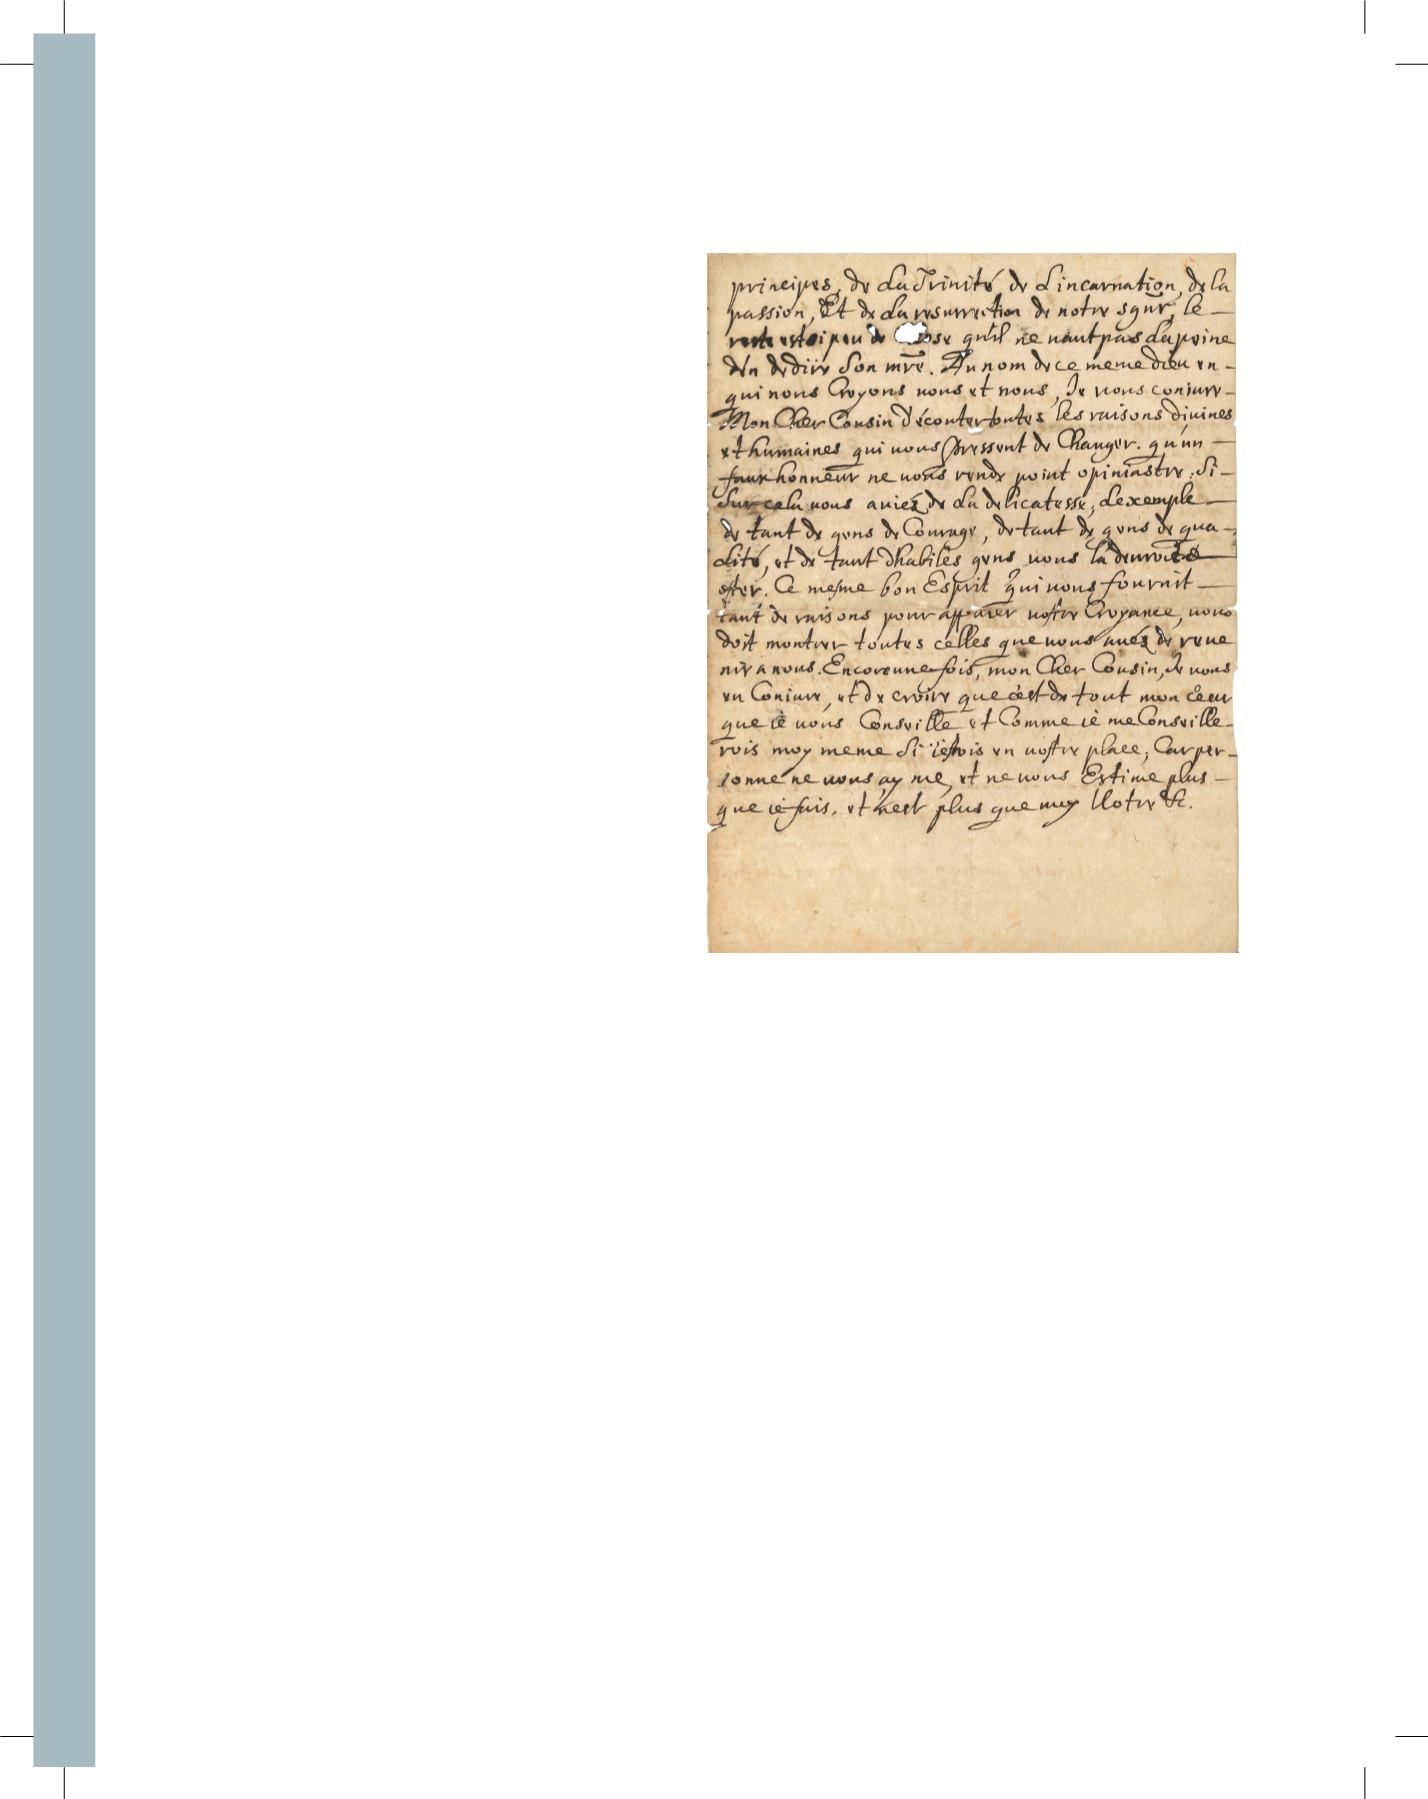 principes, de La Trinité, de L'incarnation, de la
passion, Et de La resurrection de notre sgnr, le
reste est si peu de ose qu'il ne uaut pas La peine
d'en dedire Son mre. Au nom de ce meme dieu en
qui nous Croyons uous et nous, Je uous coniure
Mon Cher Cousin d'écouter toutes les raisons diuines
et humaines qui uous pressent de Changer. qu'un
faux honneur ne uous rende point opiniastre. Si
Sur cela uous auiez de La delicatesse, L'exemple
de tant de gens de Courage, de tant de gens de qua-
Lité, et de tant d'habiles gens uous la deuroit
oster. Ce mesme bon Esprit qui uous fournit
tant de raisons pour appuier uostre Croyance, uous
doit montrer toutes celles que uous auez de reue
nir a nous. Encore une fois, mon Cher Cousin, Je uous
en Coniure, et de croire que c'est de tout mon cœur
que ie uous Conseille et Comme ie me Conseille-
rois moy meme Si i'estois en uostre place, Car per-
sonne ne uous ayme, et ne uous Estime plus
que ie fais. et n'est plus que moy Votre &c.